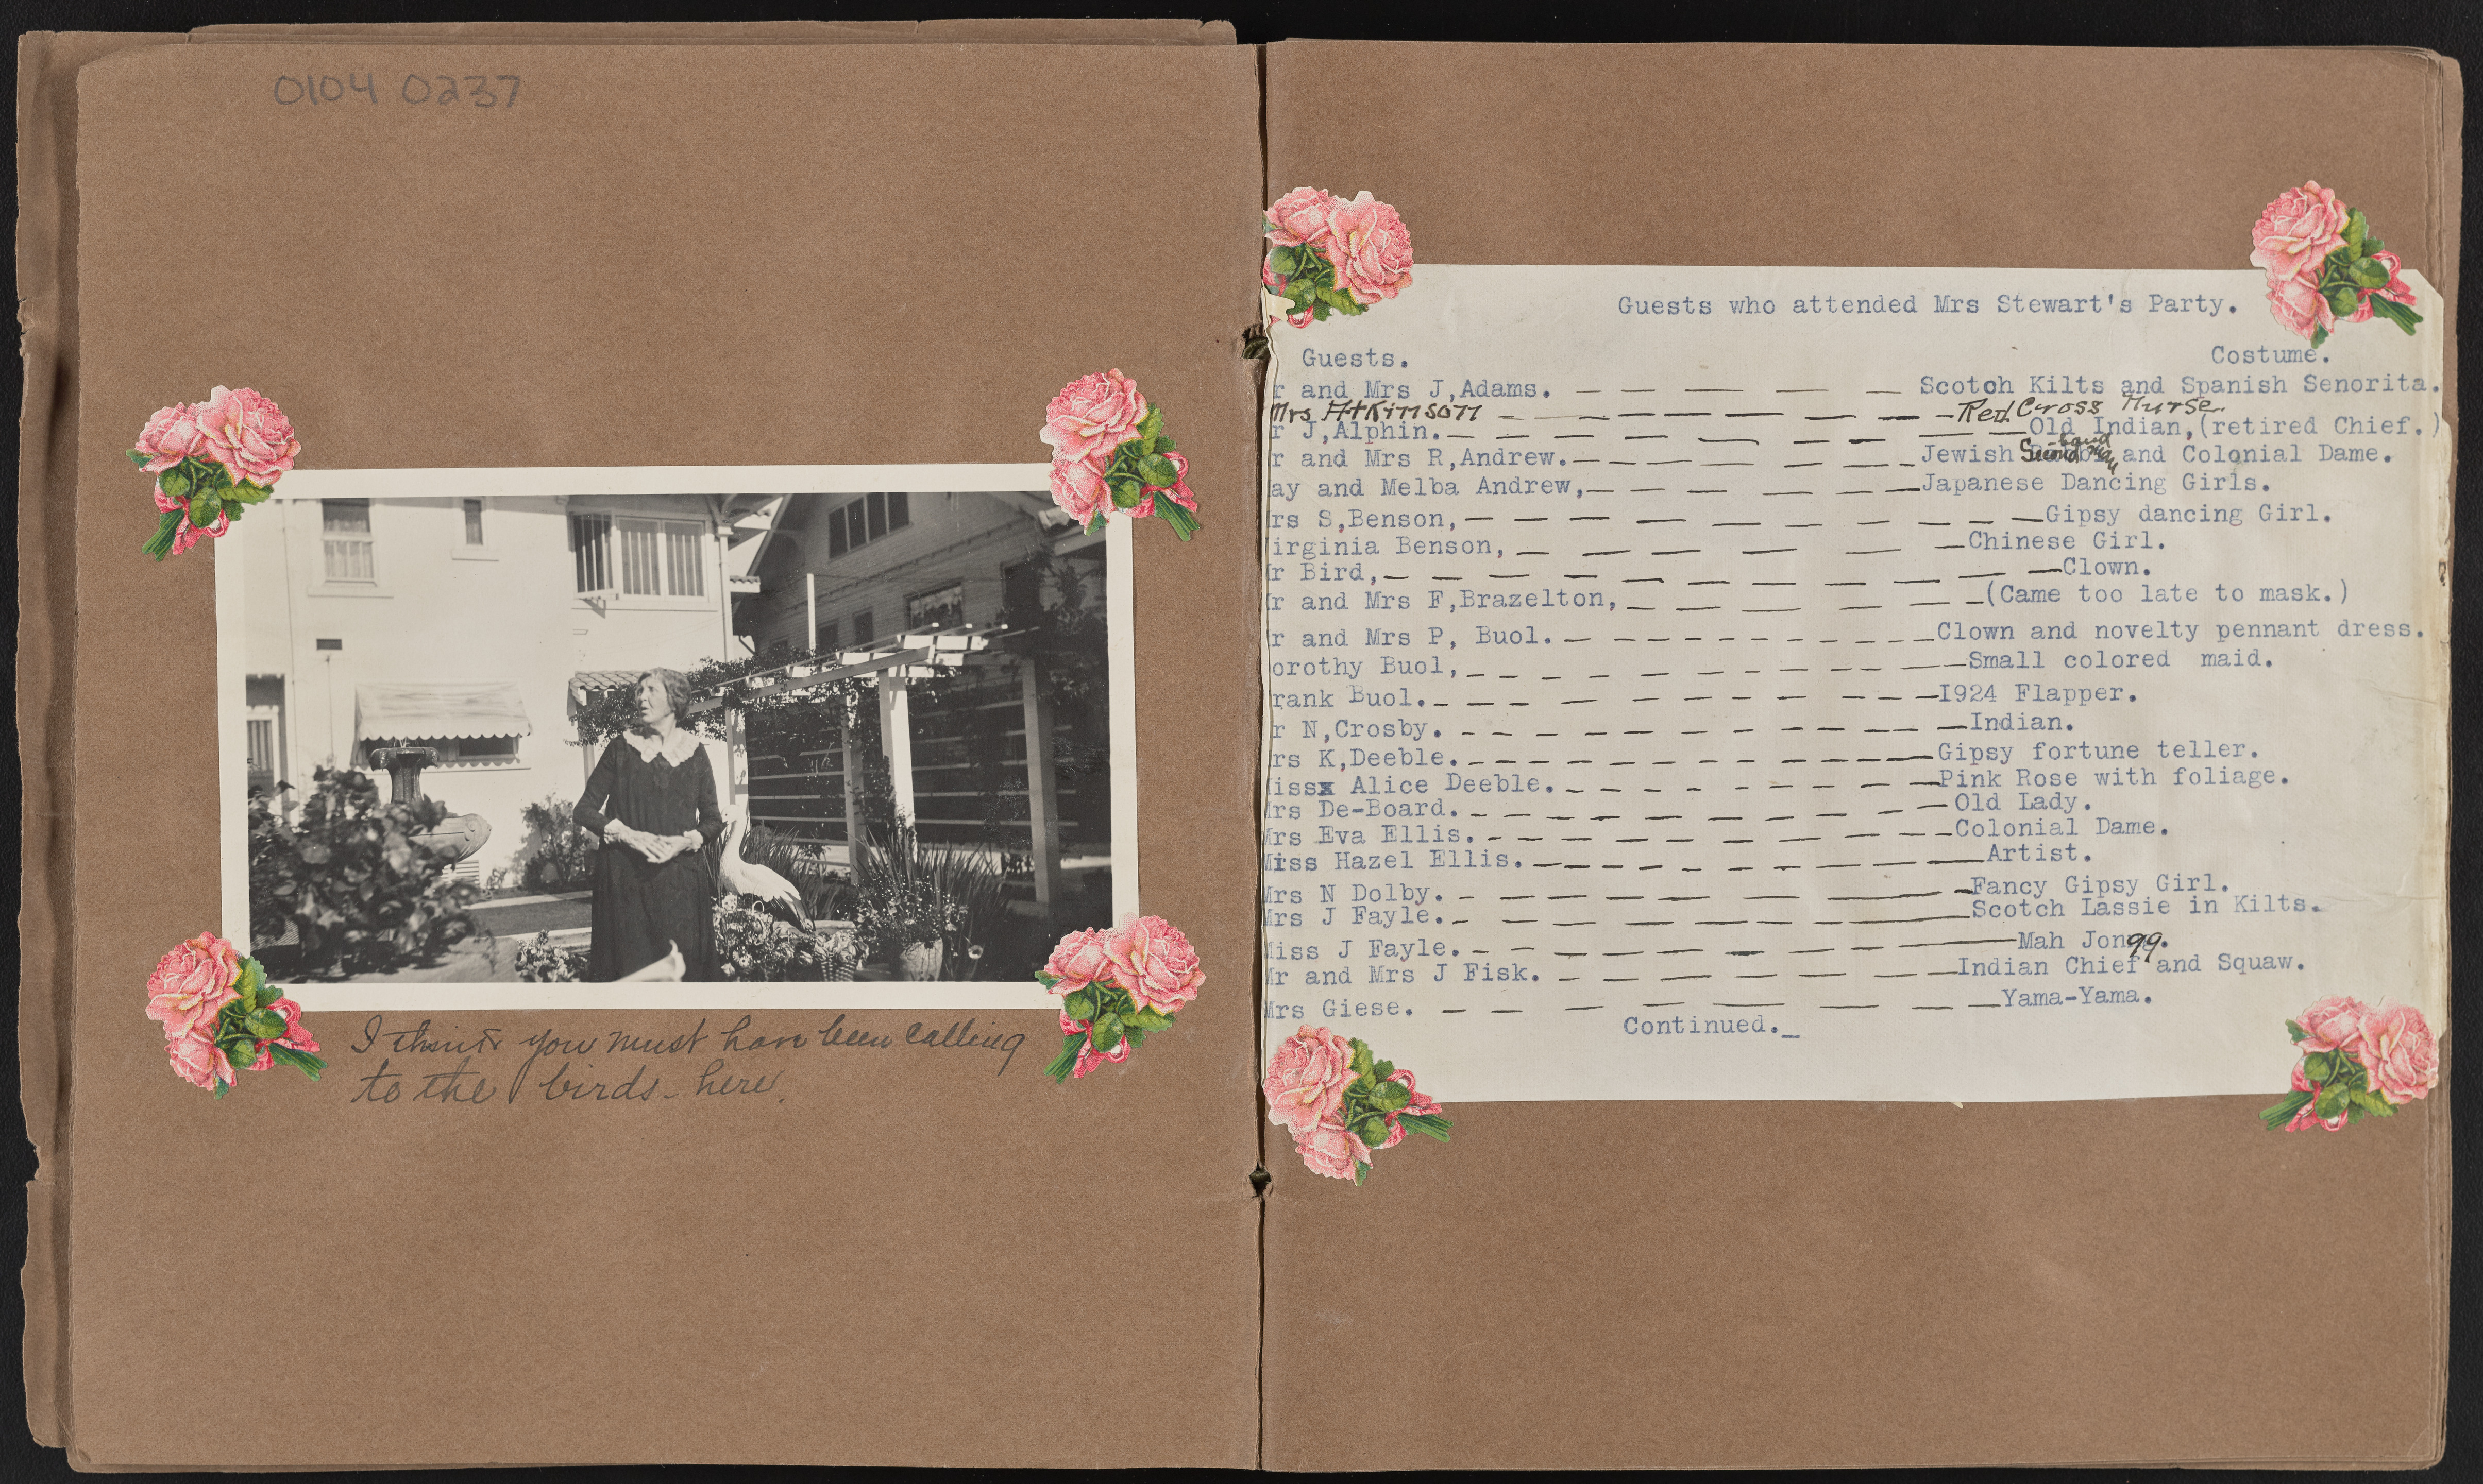 0104 0237
I think you must have been calling
to the birds - here.
Guests who attended Mrs Stewart's Party.
Guests. Costume.
r and Mrs J,Adams. — — — — — Scotch Kilts and Spanish Senorita.
Mrs Atkinson — — — — — — — — Red Cross Nurse.
r J,Alphin. — — — — — — — — Old Indian,(retired Chief.)
r and Mrs R,Andrew. — — — — — — Jewish Second hand Man and Colonial Dame.
ay and Melba Andrew, — — — — — — Japanese Dancing Girls.
rs S,Benson, — — — — — — — — — — — Gipsy dancing Girl.
irginia Benson, — — — — — — — Chinese Girl.
r Bird, — — — — — — — — — — — Clown.
r and Mrs F,Brazelton, — — — — — — — (Came too late to mask.)
r and Mrs P, Buol. — - - - - - - - - Clown and novelty pennant dress.
orothy Buol, - - - - - - - - - - — Small colored maid.
rank Buol. - - - - - - - - - - — I924 Flapper.
r N,Crosby. - - - - - - - - - - - — Indian.
rs K,Deeble. - - - - - - - - - - - — Gipsy fortune teller.
issx Alice Deeble. - - - - - - - - — Pink Rose with foliage.
Mrs De-Board. - - - - - - - - - - — Old Lady.
Mrs Eva Ellis. - - - - - - - - - - — Colonial Dame.
Miss Hazel Ellis. — - - - - - - - - — Artist.
Mrs N Dolby. - — — — — — — — - Fancy Gipsy Girl.
Mrs J Fayle. - — — — — — — — — Scotch Lassie in Kilts.
iss J Fayle. - - — — — — — — — Mah Jongg.
Mr and Mrs J Fisk. - — — — — — — — Indian Chief and Squaw.
Mrs Giese. — — — — — — — — Yama-Yama.
Continued._